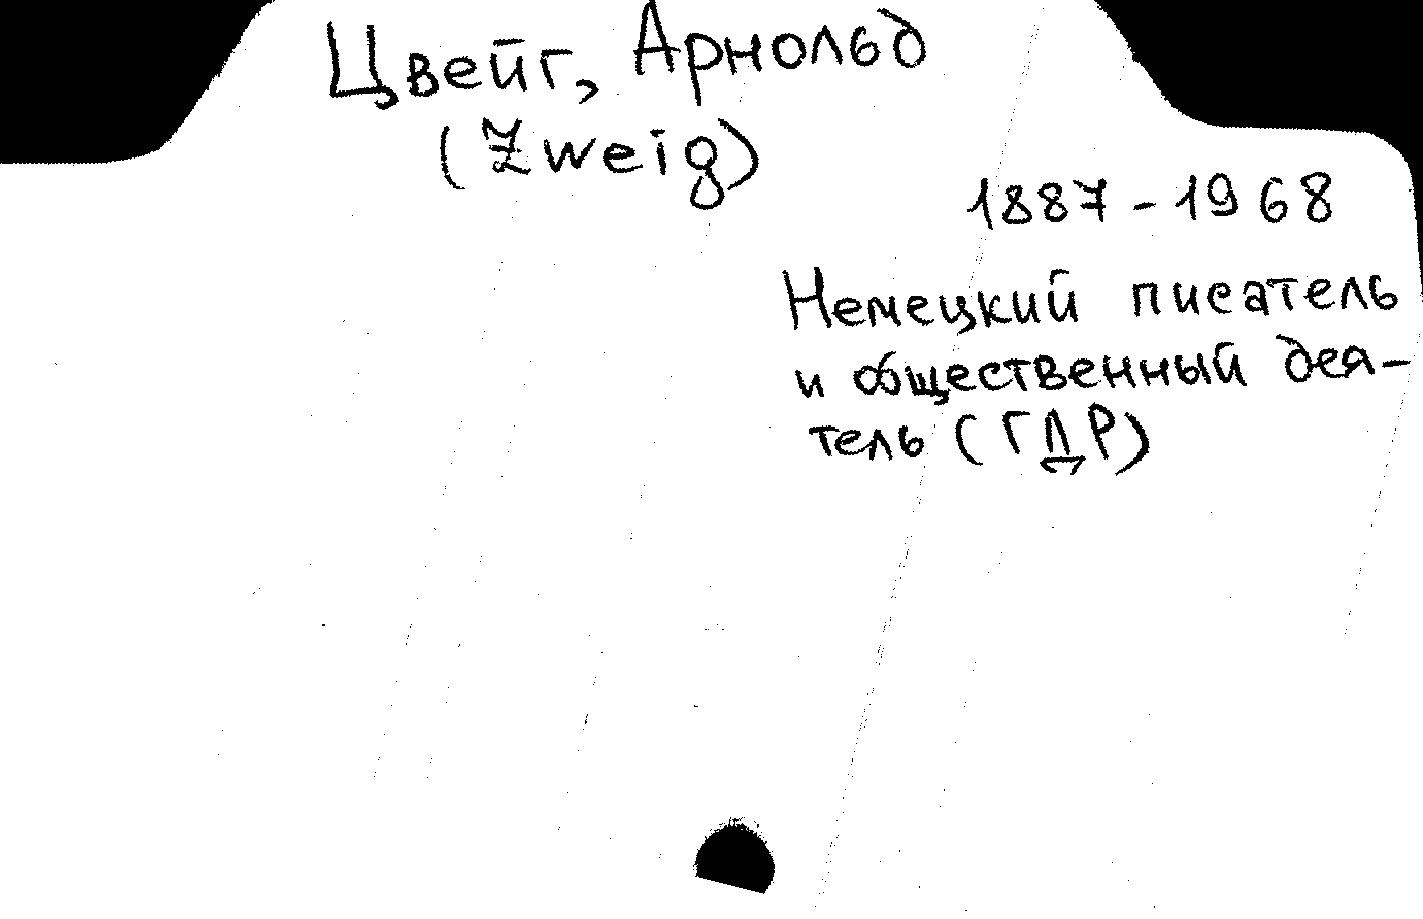 Цвейг, Арнольд
(Zweig)
1887-1968
Немецкий писатель
и общественный дея-
тель (ГДР)